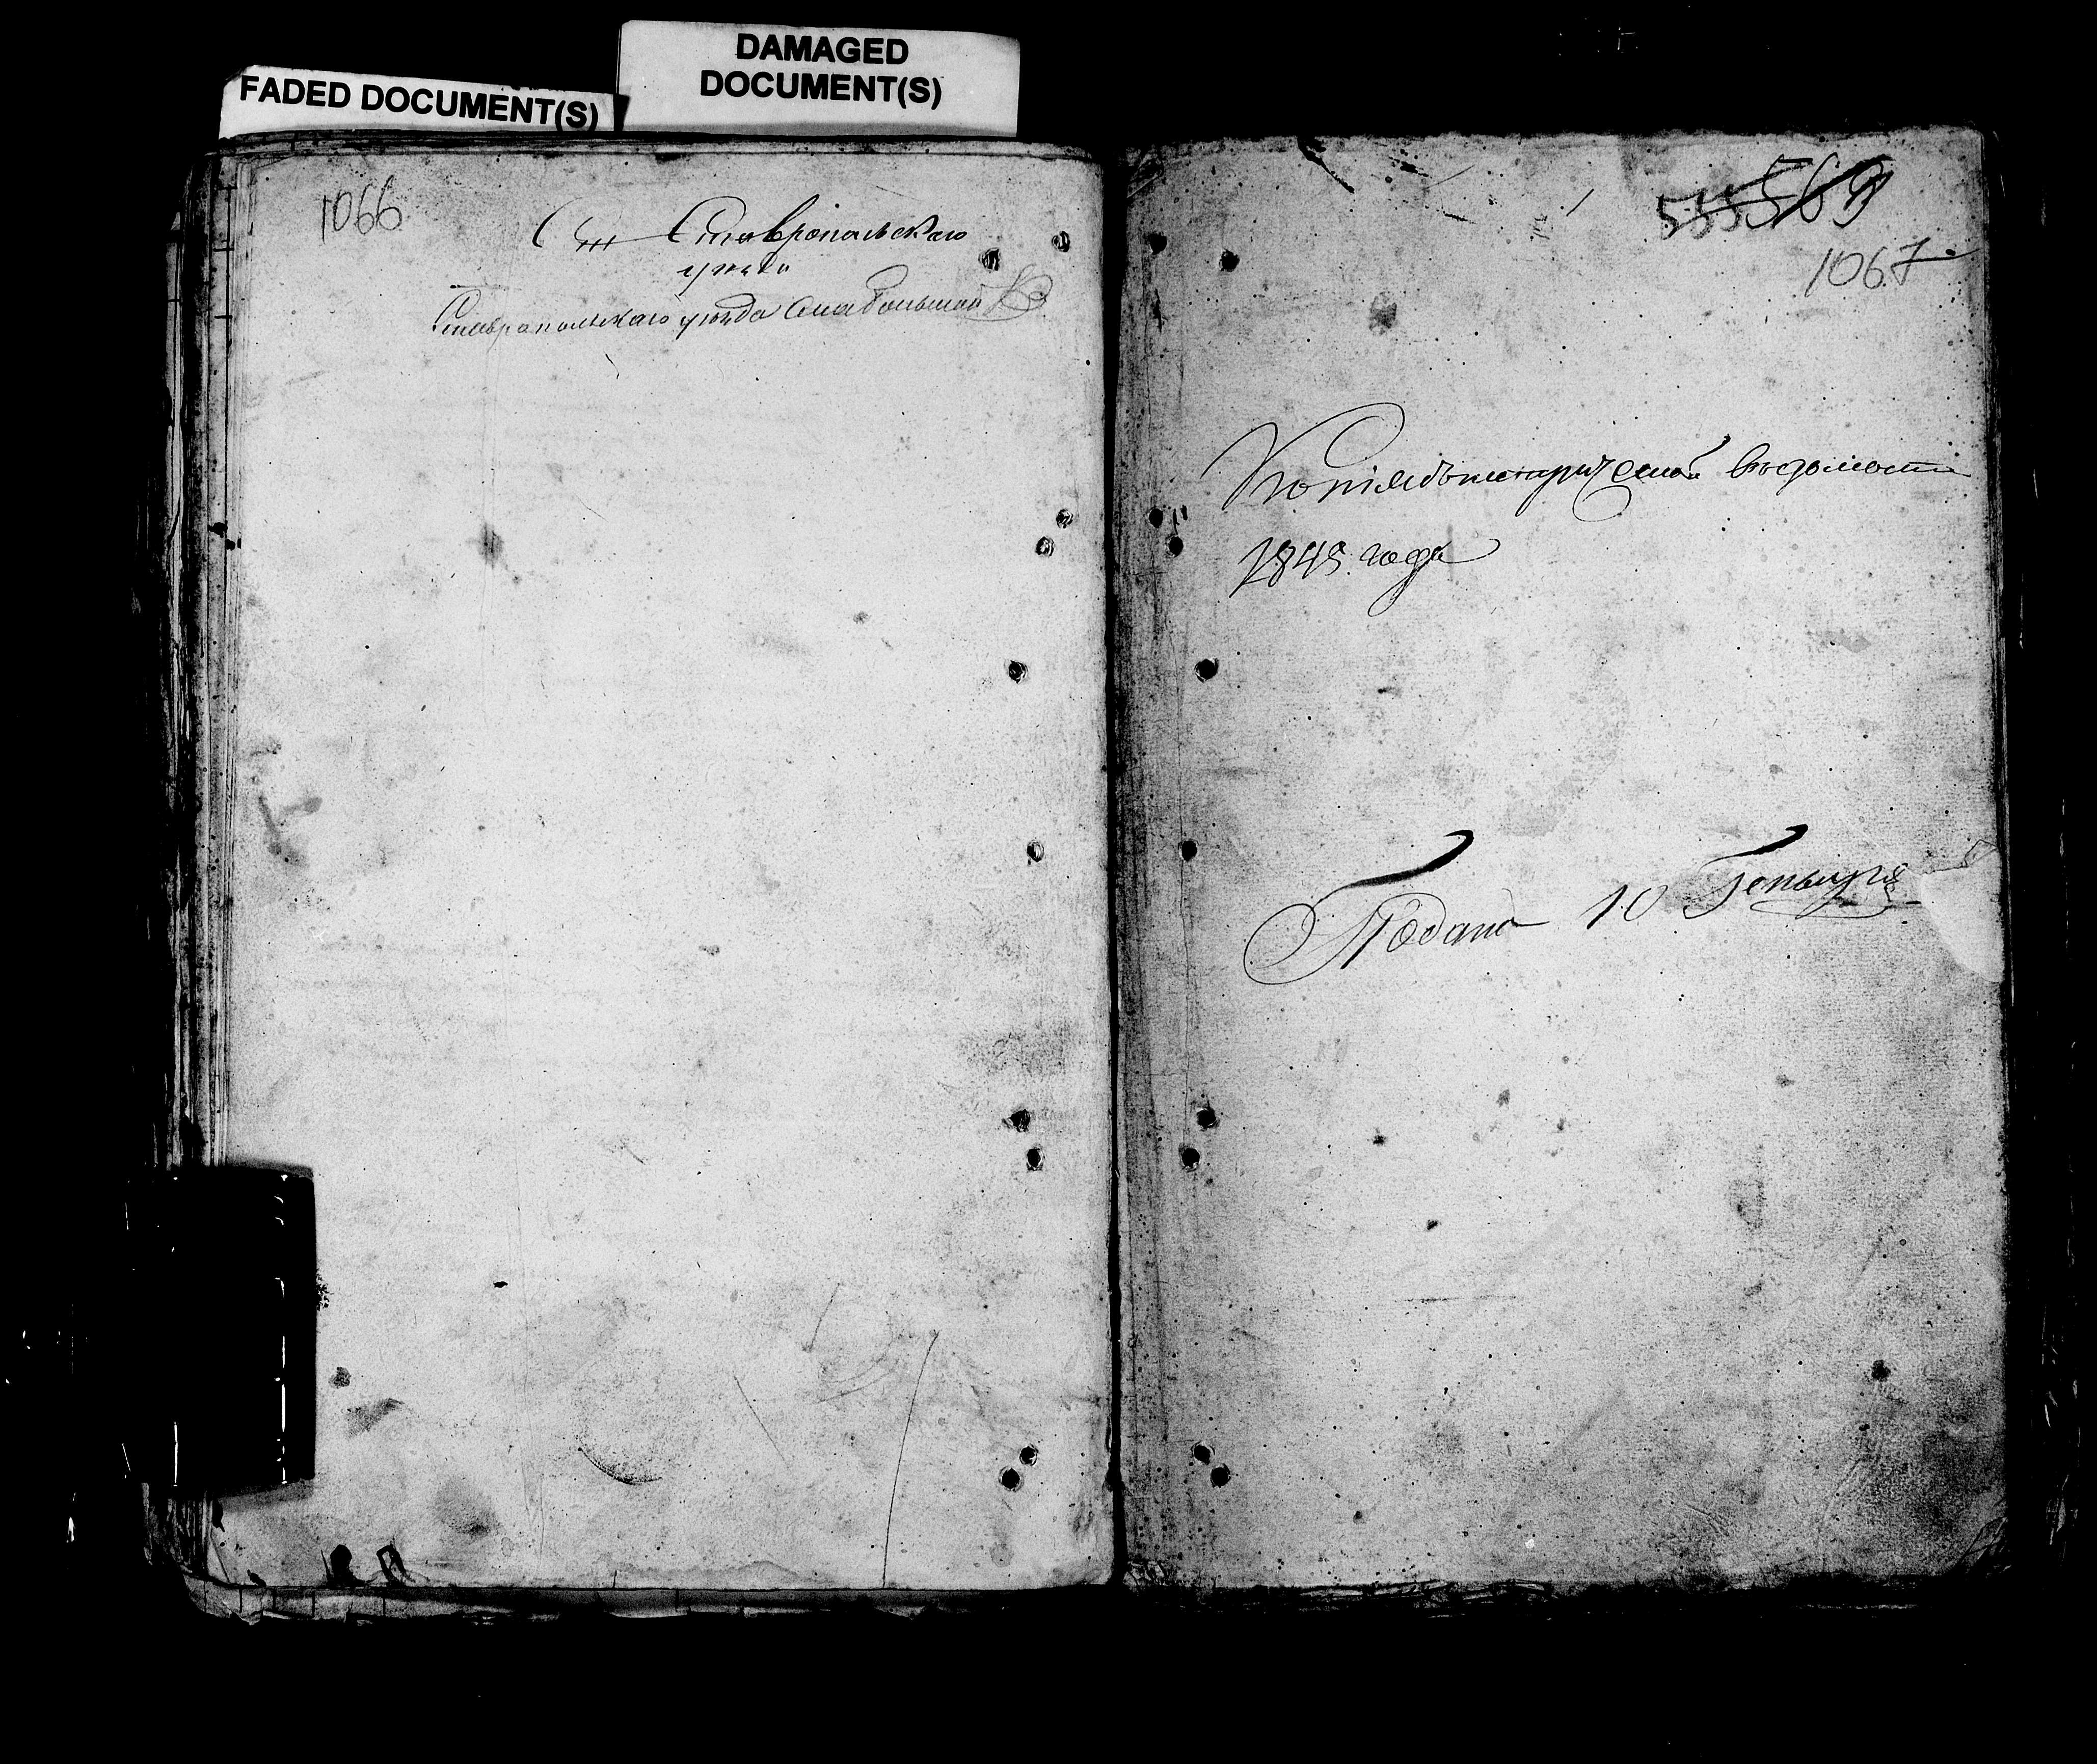 FADED DOCUMENT(S)
DAMAGED
DOCUMENT(S)
1066
Ставропольскаго
уезда
Ставропольскаго уезда
555 569
1067
Копия с метрической ведомости
1848 года
Подано 10 Генваря